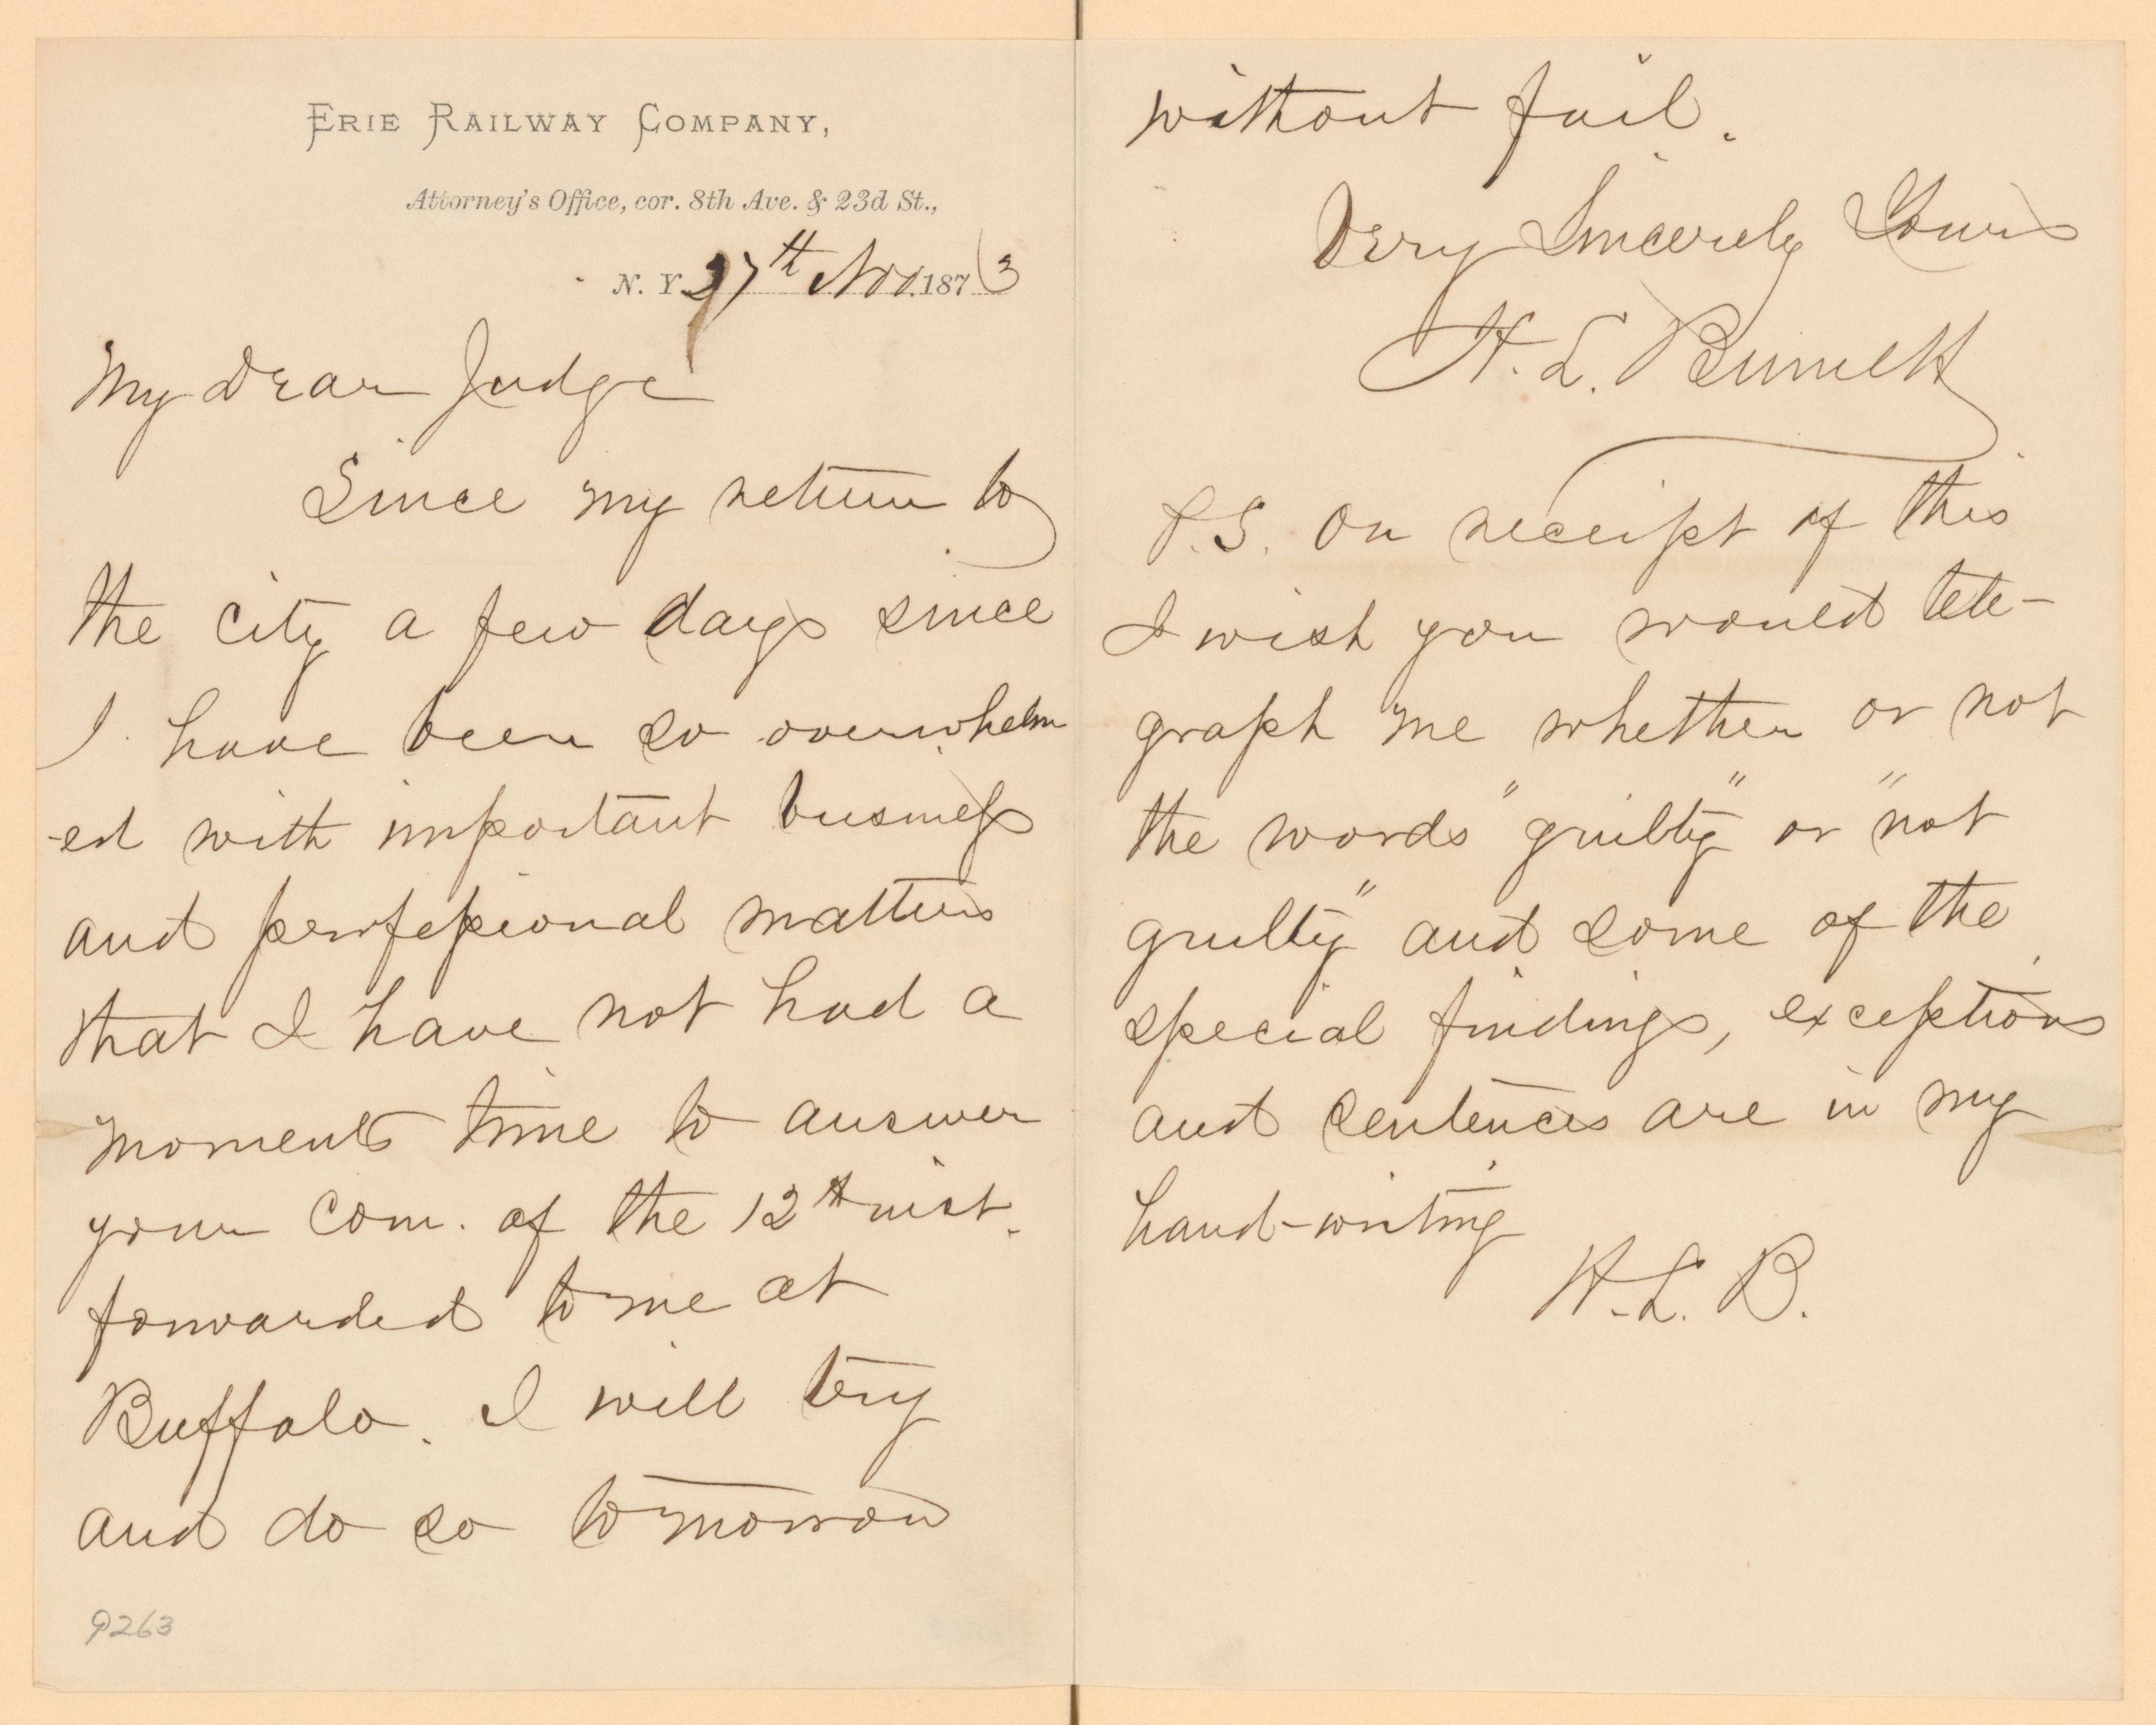 ERIE RAILWAY COMPANY,
Attorney's Office, cor. 8th Ave. & 23d St.,
N. Y. 27th Nov. 1873
My Dear Judge
Since my return to
the city a few days since
I have been so overwhelm
-ed with important business
and professional matters
that I have not had a
moments time to answer
your Com. of the 12th inst.
forwarded to me at
Buffalo. I will try
and do so tomorrow
9263
without fail.
Very Sincerely Yours
H. L. Burnett
P.S. On receipt of this
I wish you would tele-
graph me whether or not
the words "guilty" or "not
guilty" and some of the
special findings, exceptions
and sentences are in my
hand-writing
H. L. B.